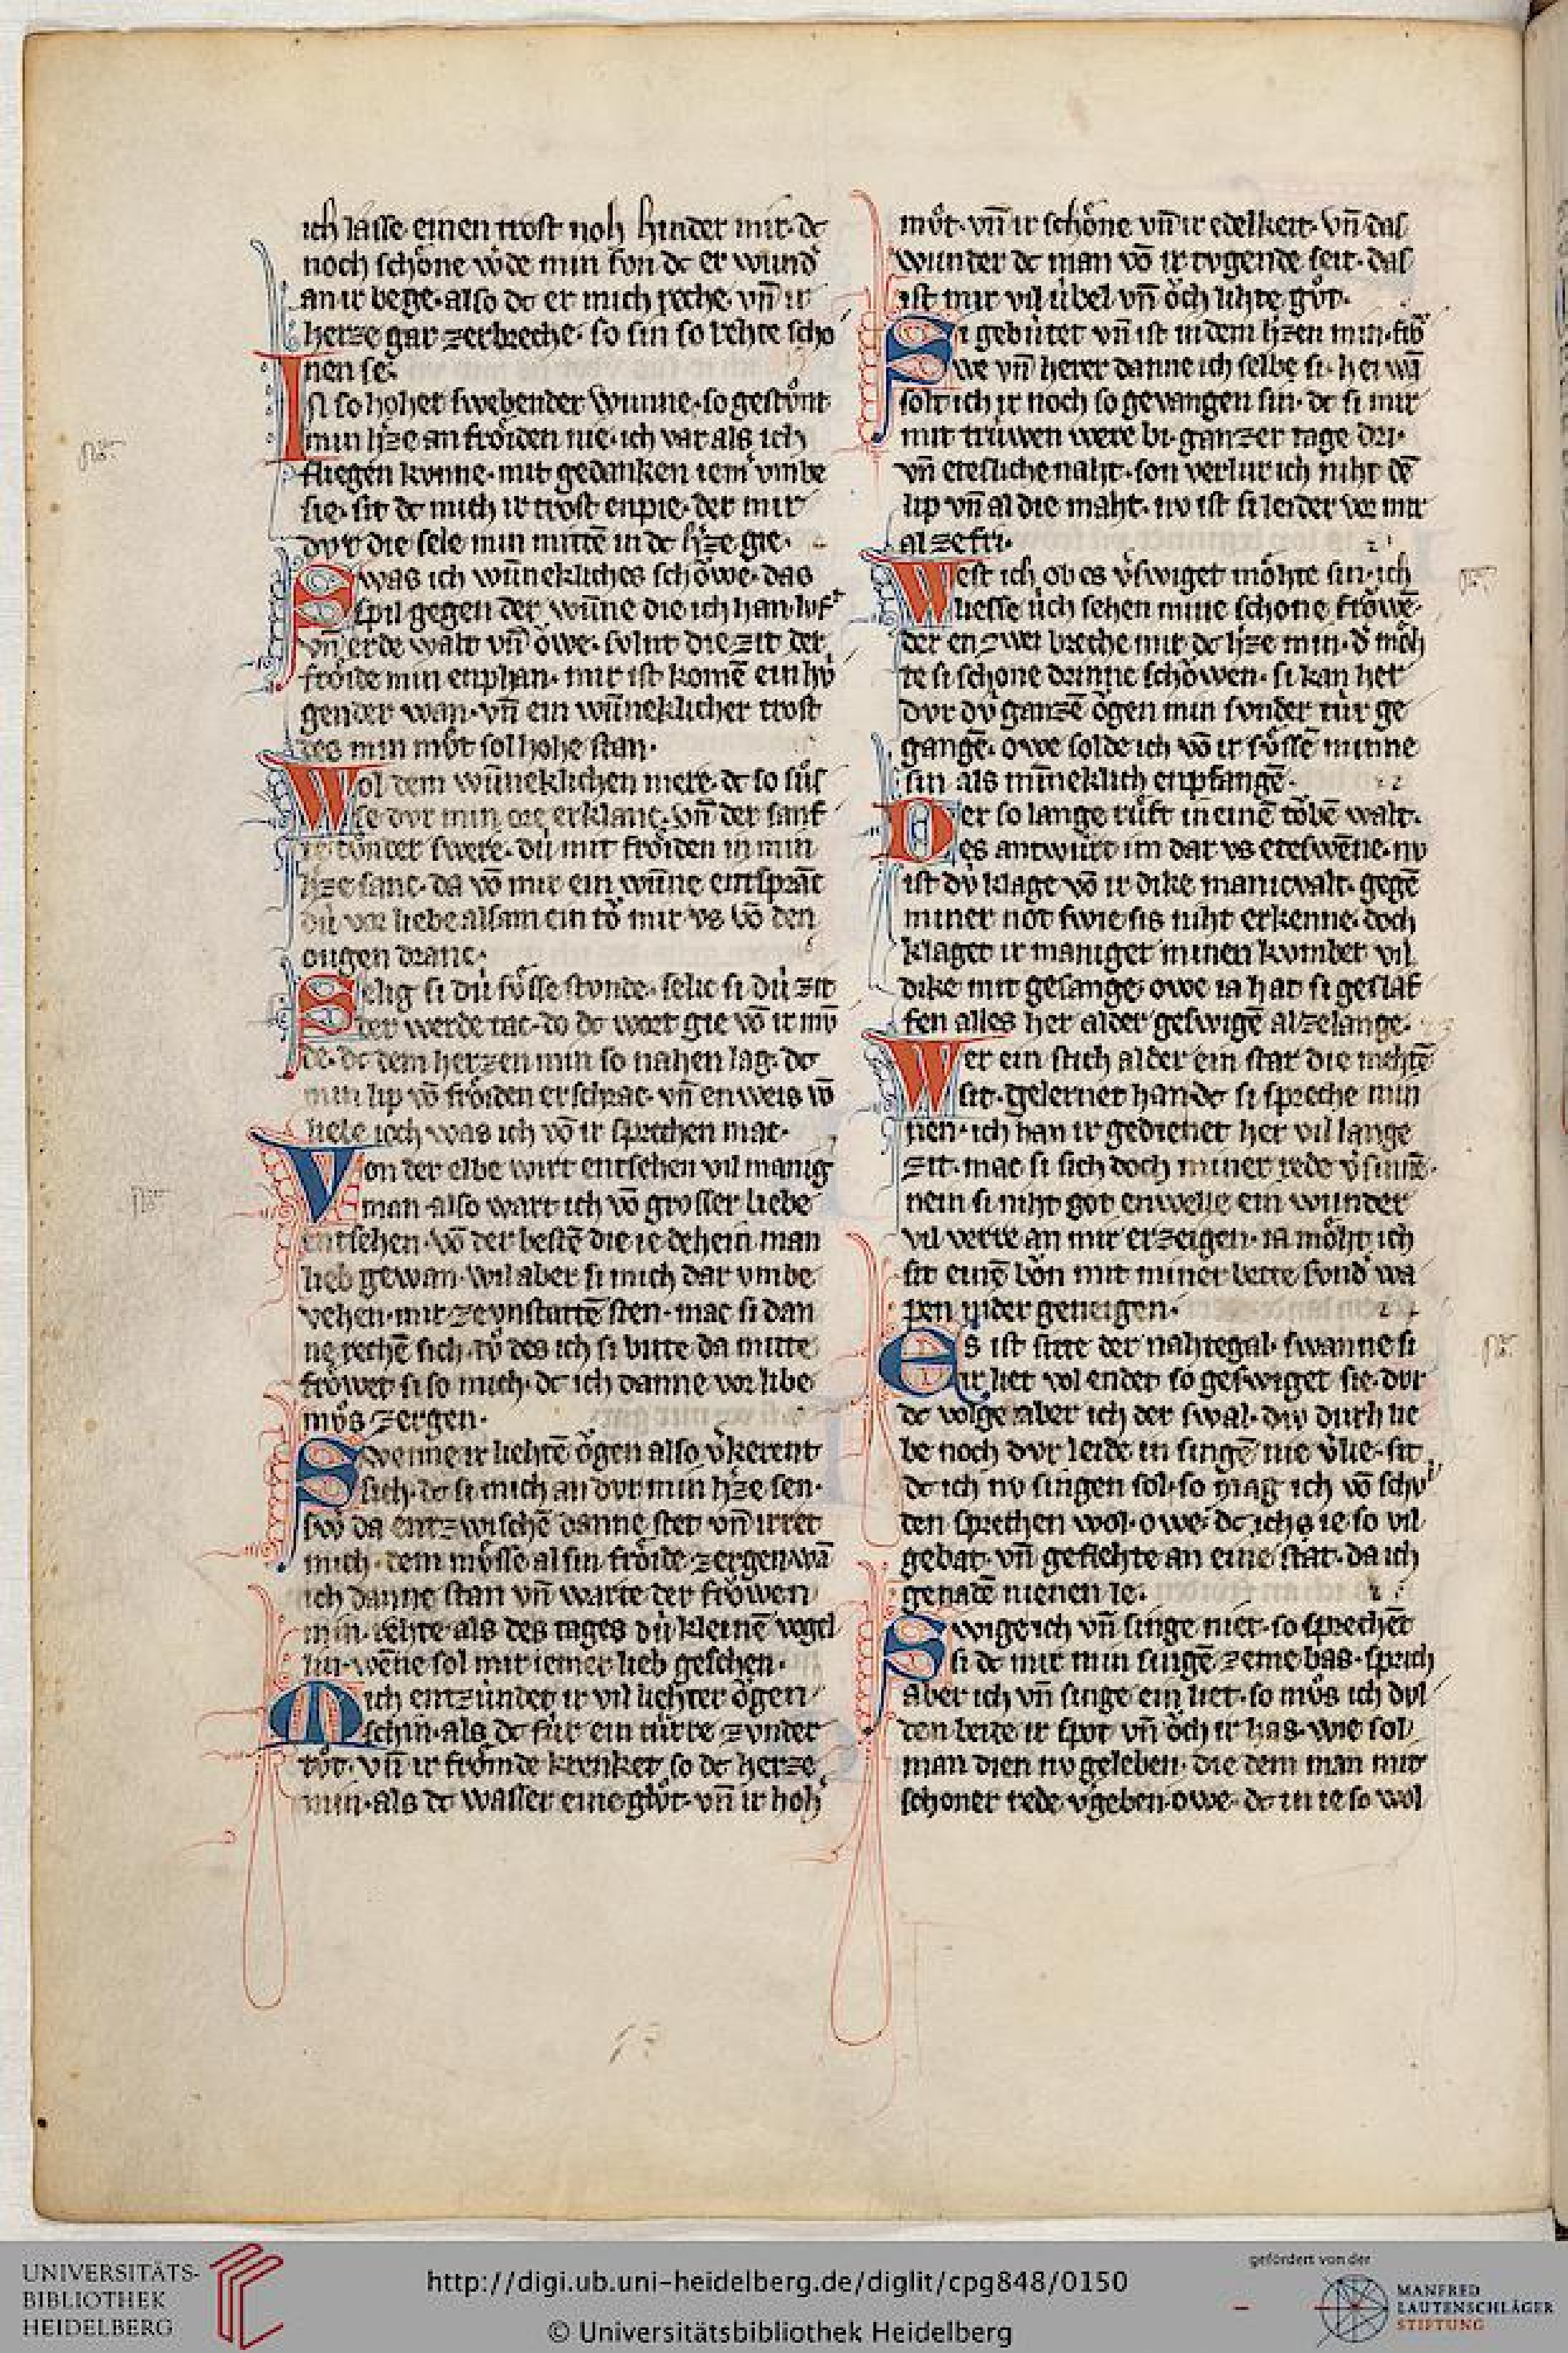 ich lasse einen trost noh hinder mir· dc
noch schoͤne wͤde min sun dc er wundͤ
an ir bege· also dc er mich reche· vn̄ ir
herze gar zerbreche· so sin so rehte scho
nen se·
In so hoher swebender wunne· so gestuͦnt
min hͤze an froͤiden nie· ich var als ich
fliegen kvnne· mit gedanken iem̄ vmbe
sie· sit dc mich ir trost enpie· der mir
dvr die sele min mittē in dc hͤze gie·
Swas ich wūnekliches schoͮwe· das
spil gegen der wūne die ich han· luft
vn̄ erde walt vn̄ oͮwe· svlnt die zit der
froͤide min enphan· mir ist komē ein hv
gender wan· vn̄ ein wūneklicher trost
des min muͦt sol hohe stan·
Wol dem wūneklichen mere· dc so suͤs
se dvr min ore erklanc· vn̄ der sanf
te tuͦnder swere· duͥ mit froͤiden in min
hͤze sanc· da vō mir ein wūne entspranc
duͥ vor liebe alsam ein toͮ mir vs vō den
ougen dranc·
Selig si duͥ suͤsse stvnde· selic si duͥ zit
der werde tac· do dc wort gie vō ir mv̄
de· dc dem herzen min so nahen lag· dc
min lip vō froͤiden erschrac· vn̄ en weis vō
liebe ioch was ich vō ir sprechen mac·
Von der elbe wirt entsehen vil manig
man also wart ich vō grosser liebe
entsehen· vō der bestē die ie dehein man
lieb gewan· wil aber si mich dar vmbe
vehen· mir ze vnstattē sten· mac si dan
ne rechē sich· tvͦ des ich si bitte da mitte
froͤwet si so mich· dc ich danne vor libe
muͦs zergen·
Swenne ir liehtē oͮgen also vͤkerent
sich· dc si mich an dvr min hͤze sen·
swͦ da entzwischē danne stet vn̄ irret
mich· dem muͤsse al sin froͤide zergen wā
ich danne stan vn̄ warte der froͮwen
min· rehte als des tages duͥ kleinē vogel
lin· wēne sol mir iemer lieb geschen·
Mich entzuͥndet ir vil liehter oͮgen
schin· als dc fuͥr ein duͥrre zvnder
tuͦt· vn̄ ir froͤmde krenket so dc herze
min· als dc wasser eine gluͦt· vn̄ ir hohͤ
muͦt· vn̄ ir schoͤne vn̄ ir edelkeit· vn̄ das
wunder dc man vō ir tvgende seit· das
ist mir vil uͥbel vn̄ oͮch lihte guͦt·
Si gebuͥtet vn̄ ist in dem hͤzen min· froͮ
we vn̄ herer danne ich selbe si· hei wā
solt ich ir noch so gevangen sin· dc si mir
mit truͥwen were bi· ganzer tage dri·
vn̄ etesliche naht· son verlur ich niht dē
lip vn̄ al die maht· nv ist si leider vor mir
al ze fri·
West ich ob es vͤswiget moͤhte sin· ich
liesse uͥch sehen mine schone froͮwē·
der enzwei breche mir dc hͤze min· dͤ moͤh
te si schone drinne schoͮwen· si kan her
dvr dvͥ ganzē oͮgen min svnder tuͥr ge
gangē· owe solde ich vō ir suͤssē minne
sin als mīneklich enpfangē·
Der so lange ruͤft in einē tobē walt·
es antwuͥrt im dar vs eteswēne· nv
ist dvͥ klage vō ir dike manicvalt· gegē
miner not swie sis niht erkenne· doch
klaget ir maniger minen kvmber vil
dike mit gesange· owe ia hat si geslaf
fen alles her alder geswigē alze lange·
Wer ein sitich alder ein star die mehtē
sit· gelernet han dc si spreche min
nen· ich han ir gedienet her vil lange
zit· mac si sich doch miner rede vͤsinnē·
nein si niht got enwelle ein wunder
vil verre an mir erzeigen· ia moͤht ich
sit einē boͮn mit miner bette svndͤ wa
pen nider geneigen·
Es ist sitte der nahtegal· swanne si
ir liet volendet so geswiget sie· dvr
dc volge aber ich der swal· dvͥ durh lie
be noch dvr leide ir singē nie vͤlie· sit
dc ich nv singen sol· so mag ich vō schvl
den sprechen wol· owe· dc ich s ie so vil
gebat· vn̄ geflehte an eine stat· da ich
genadē nienen ie·
Swige ich vn̄ singe niet· so sprechēt
si dc mir min singē zeme bas· sprich
aber ich vn̄ singe ein liet· so muͦs ich dvl
den beide ir spot vn̄ oͮch ir has· wie sol
man dien nv geleben· die dem man mit
schoner rede vͤgeben· owe· dc in ie so wol
UNIVERSITÄTS-
BIBLIOTHEK
HEIDELBERG
http://digi.ub.uni-heidelberg.de/diglit/cpg848/0150
© Universitätsbibliothek Heidelberg
gefördert von der
MANFRED
LAUTENSCHLÄGER
STIFTUNG